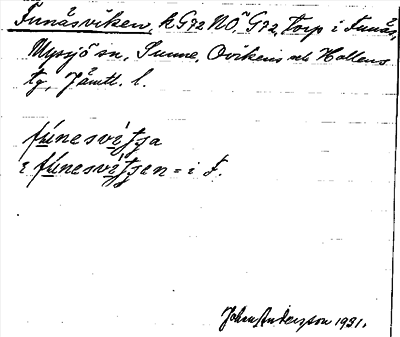 Funäsviken, k G72 NÖ G72, torp i Funäs,
Myssjö sn, Sunne, Ovikens och Hallens
tg, Jämtl. l.
fúnesvítja
i fúnesvítjen = i F.
Johan Anderson 1931.